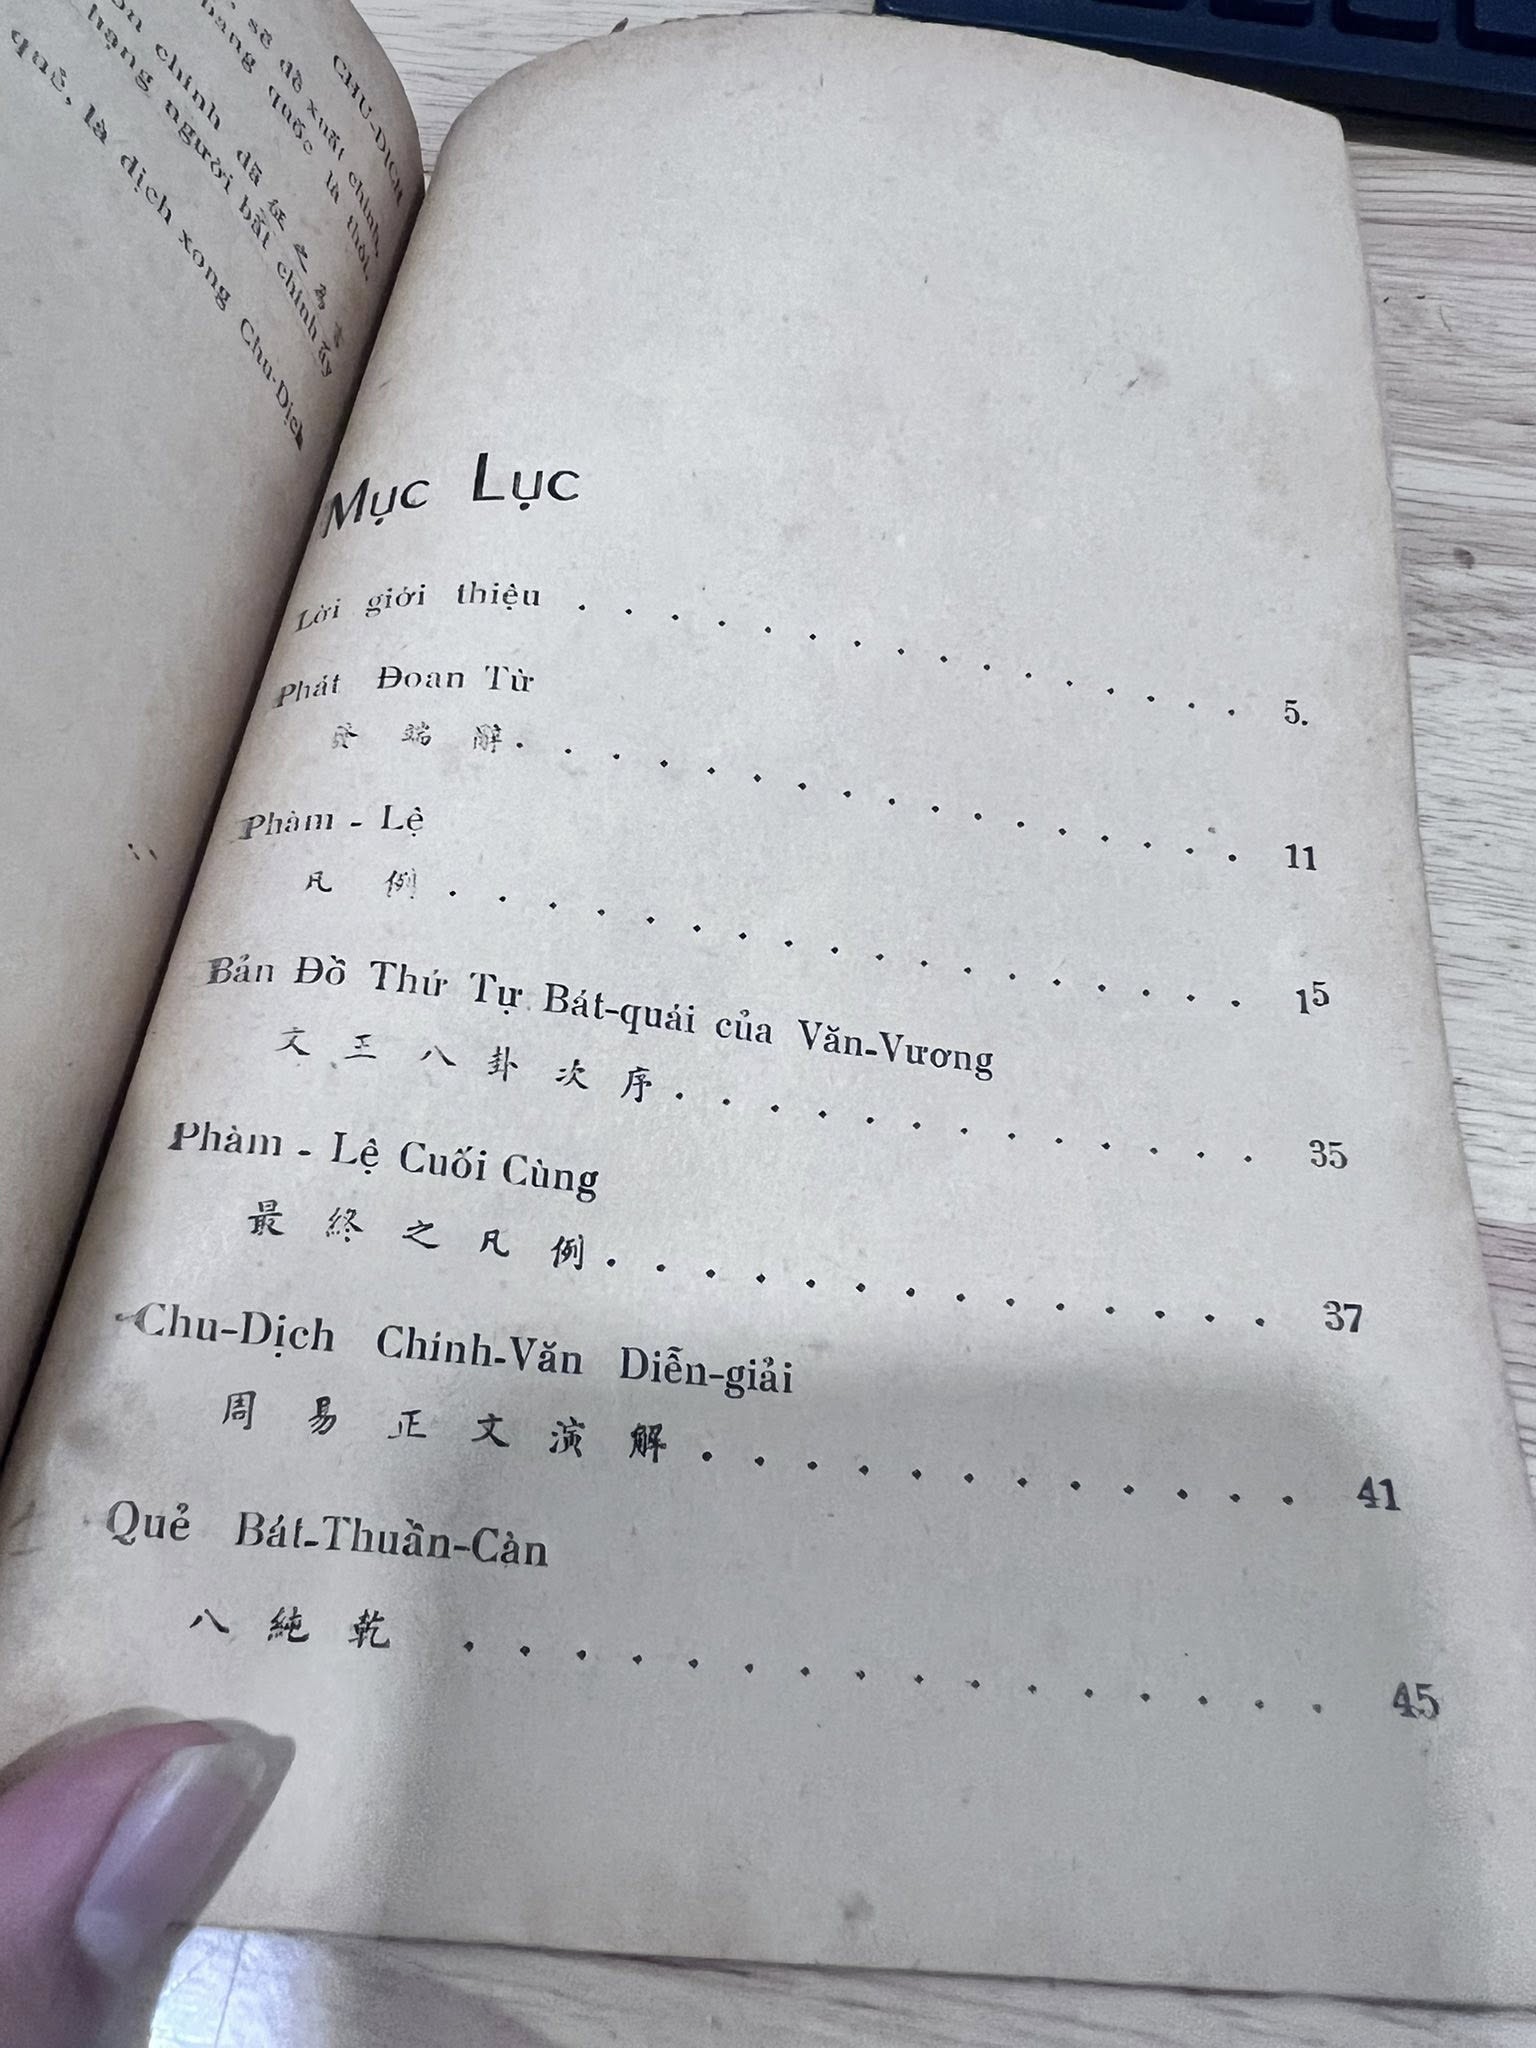 CHU-DỊCH
sẽ đề xuất chính
bang quốc là thôi.
chính đã 征 之 為 言
hạng người bất chính ấy
quẻ, là dịch xong Chu-Dịch
Mục Lục
Lời giới thiệu . . . . . . . . . . . . . . . . 5.
Phát Đoan Từ
發 端 辭 . . . . . . . . . . . . . . . . . 11
Phàm - Lệ
凡 例 . . . . . . . . . . . . . . . . . . 15
Bản Đồ Thứ Tự Bát-quái của Văn-Vương
文 王 八 卦 次 序 . . . . . . . . . . . . . 35
Phàm - Lệ Cuối Cùng
最 終 之 凡 例 . . . . . . . . . . . . . . 37
Chu-Dịch Chính-Văn Diễn-giải
周 易 正 文 演 解 . . . . . . . . . . . . 41
Quẻ Bát-Thuần-Càn
八 純 乾 . . . . . . . . . . . . . . . . 45